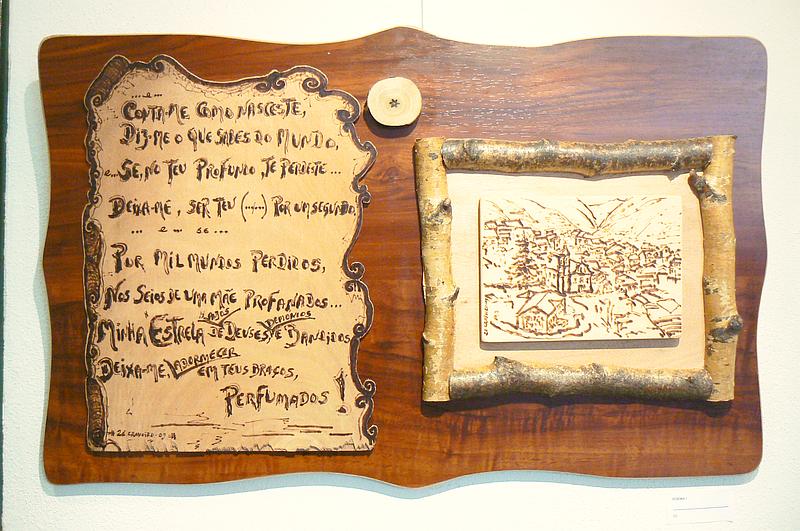 ... e ...
CONTA-ME COMO NASCESTE,
DIZ-ME O QUE SABES DO MUNDO,
e...SE, NO TEU PROFUNDO, TE PERDETE...
DEIXA-ME, SER TEU (......) POR UM SEGUNDO,
... e ... se ...
POR MIL MUNDOS PERDIDOS,
NOS SEIOS DE UMA MÃE PROFANADOS...
MINHA ESTRELA DE DEUSES E BANDIDOS
DEMONIOS
DEIXA-ME, ADORMECER
EM TEUS BRAÇOS,
PERFUMADOS!